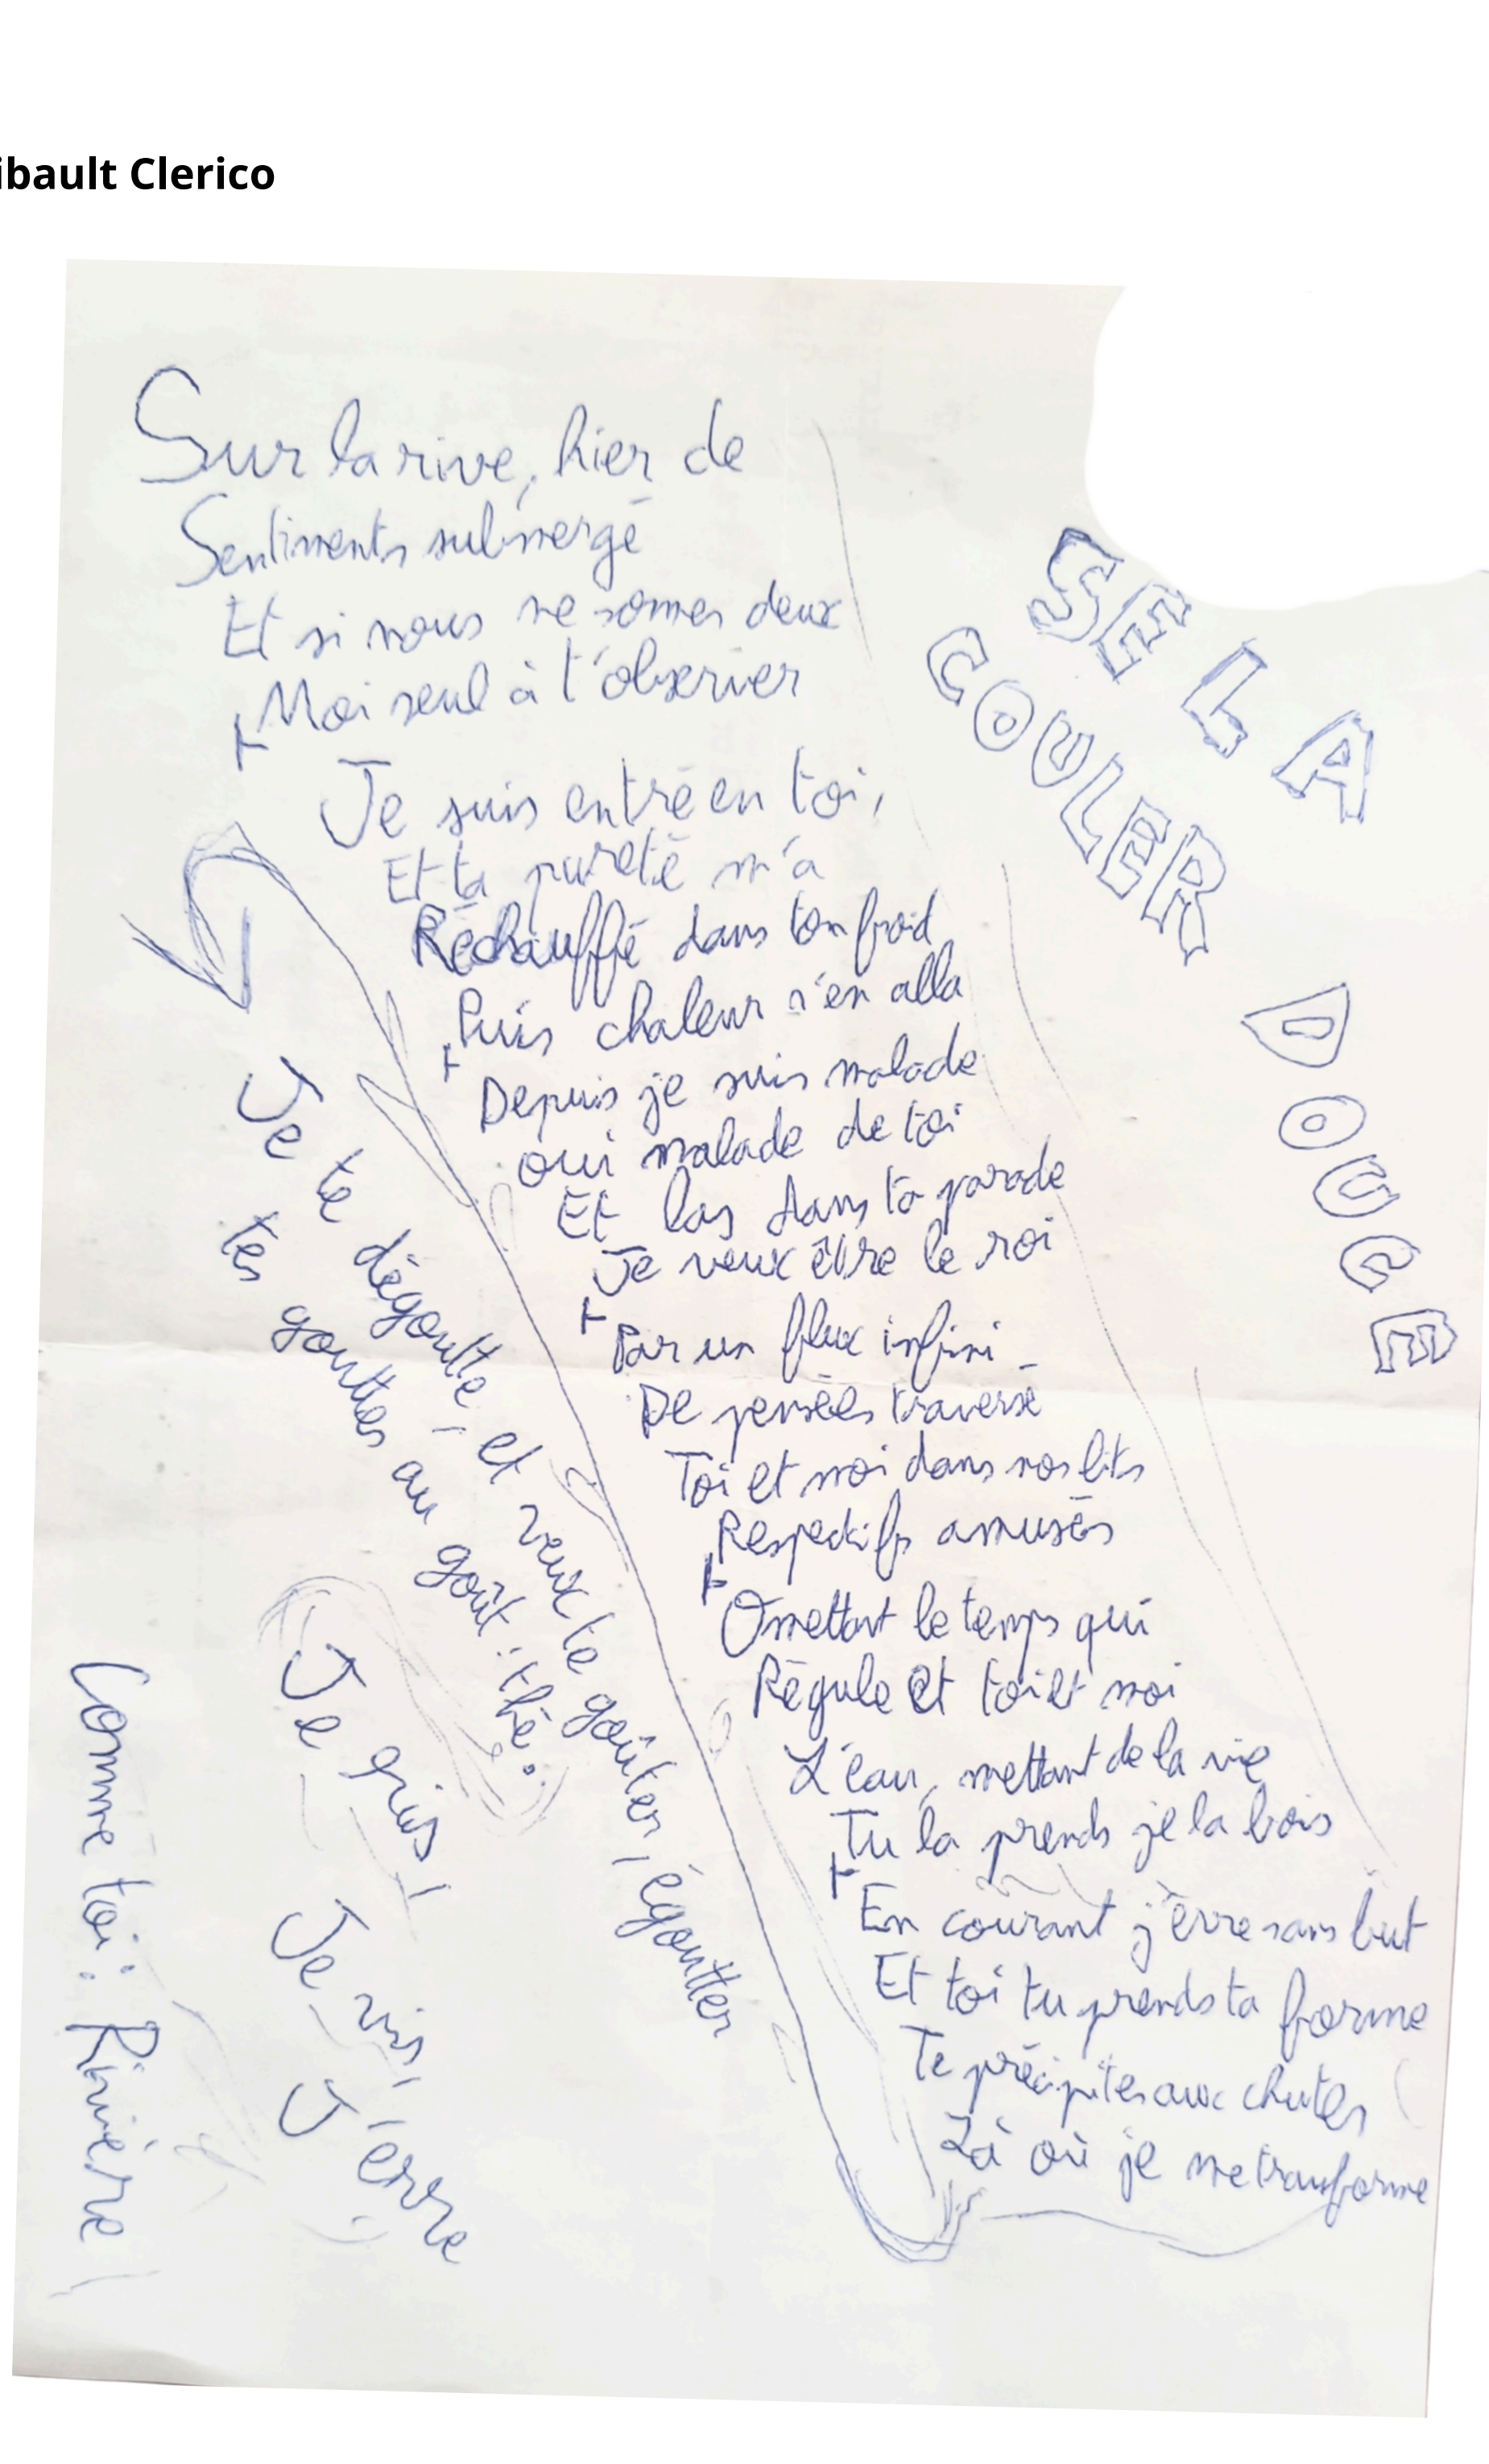 ibault Clerico
SE LA
COULER
DOUCE
Sur la rive, hier de
Sentiments submergé
Et si nous ne somes deux
Moi seul à t'observer
Je suis entré en toi,
Et ta pureté m'a
Réchauffé dans ton froid
Puis chaleur s'en alla
Depuis je suis malade
oui malade de toi
Et las dans ta parade
Je veux être le roi
Par un flux infini
De pensées traversé
Toi et moi dans nos lits
Respectifs amusés
Omettant le temps qui
Régule et toi et moi
L'eau, mettant de la vie
Tu la prends je la bois
En courant j'erre sans but
Et toi tu prends ta forme
Te précipites aux chutes
Là où je me transforme
Je te dégoutte, et veux te goûter, égoutter
tes gouttes au goût : thé.
Je
Je vis, J'erre
Comme toi : Rivière !